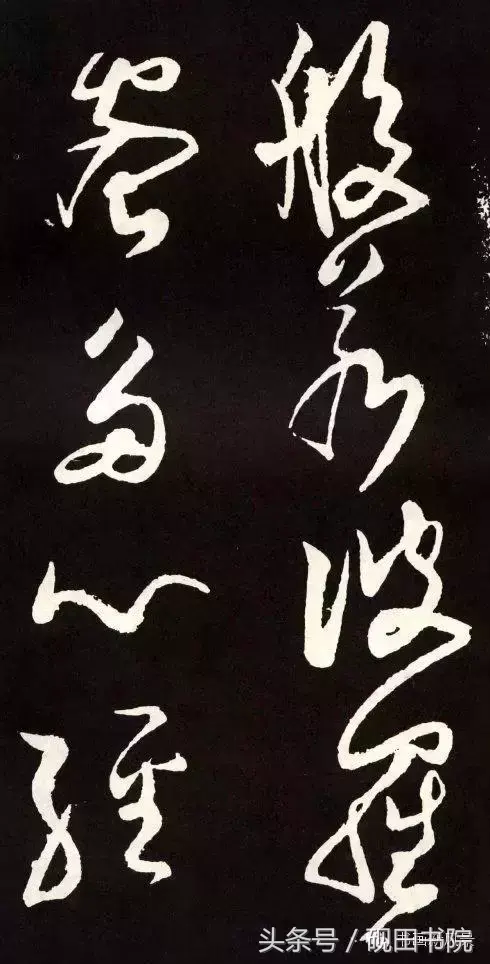 般若波羅
蜜多心経
头条号 / 砚田书院